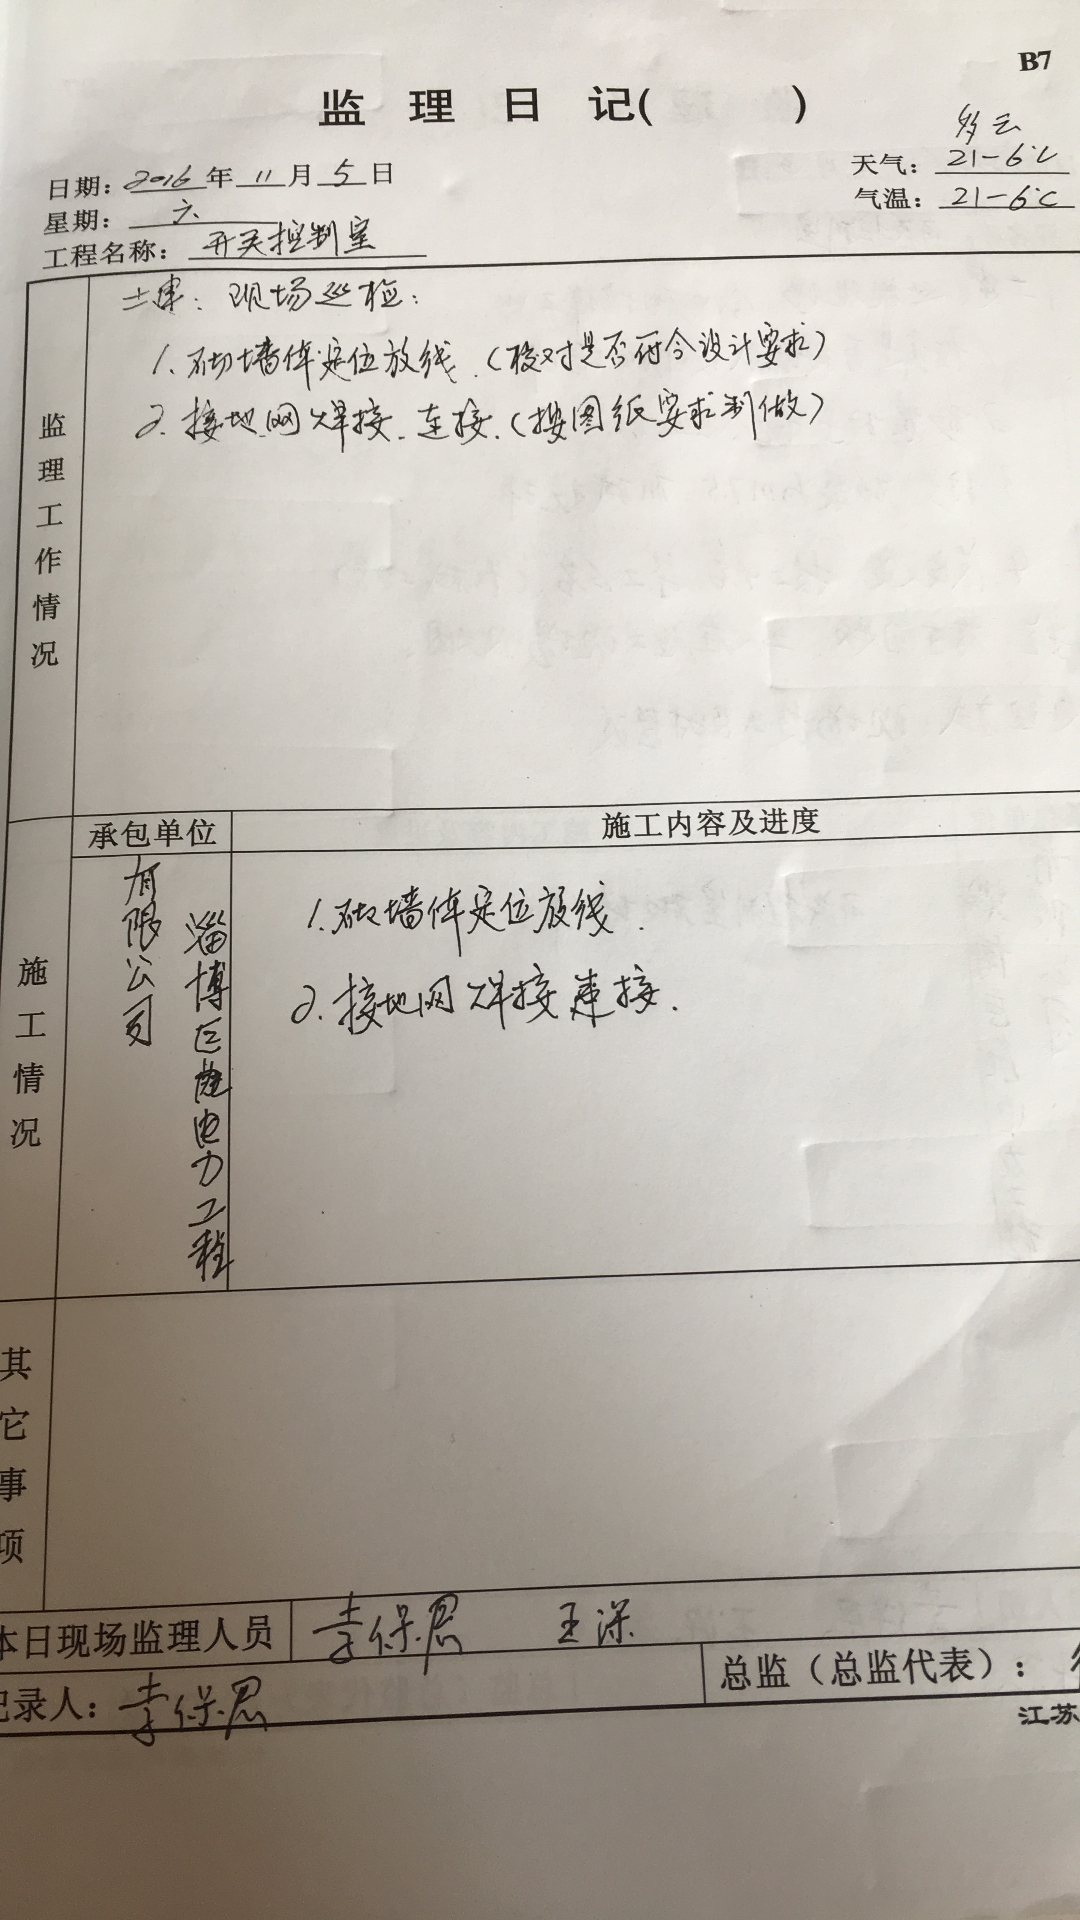 B7
监 理 日 记( )
多云
日期: 2016 年 11 月 5 日
天气: 21-6℃
星期: 六
气温: 21-6℃
工程名称: 开关控制室
监理工作情况
土建: 现场巡检:
1. 砌墙体定位放线.(核对是否符合设计要求)
2. 接地网焊接.连接.(按图纸要求制做)
承包单位
施工内容及进度
施工情况
淄博巨能电力工程
有限公司
1. 砌墙体定位放线.
2. 接地网焊接连接.
其它事项
本日现场监理人员
李保恩 王深
记录人: 李保恩
总监（总监代表）:
江苏